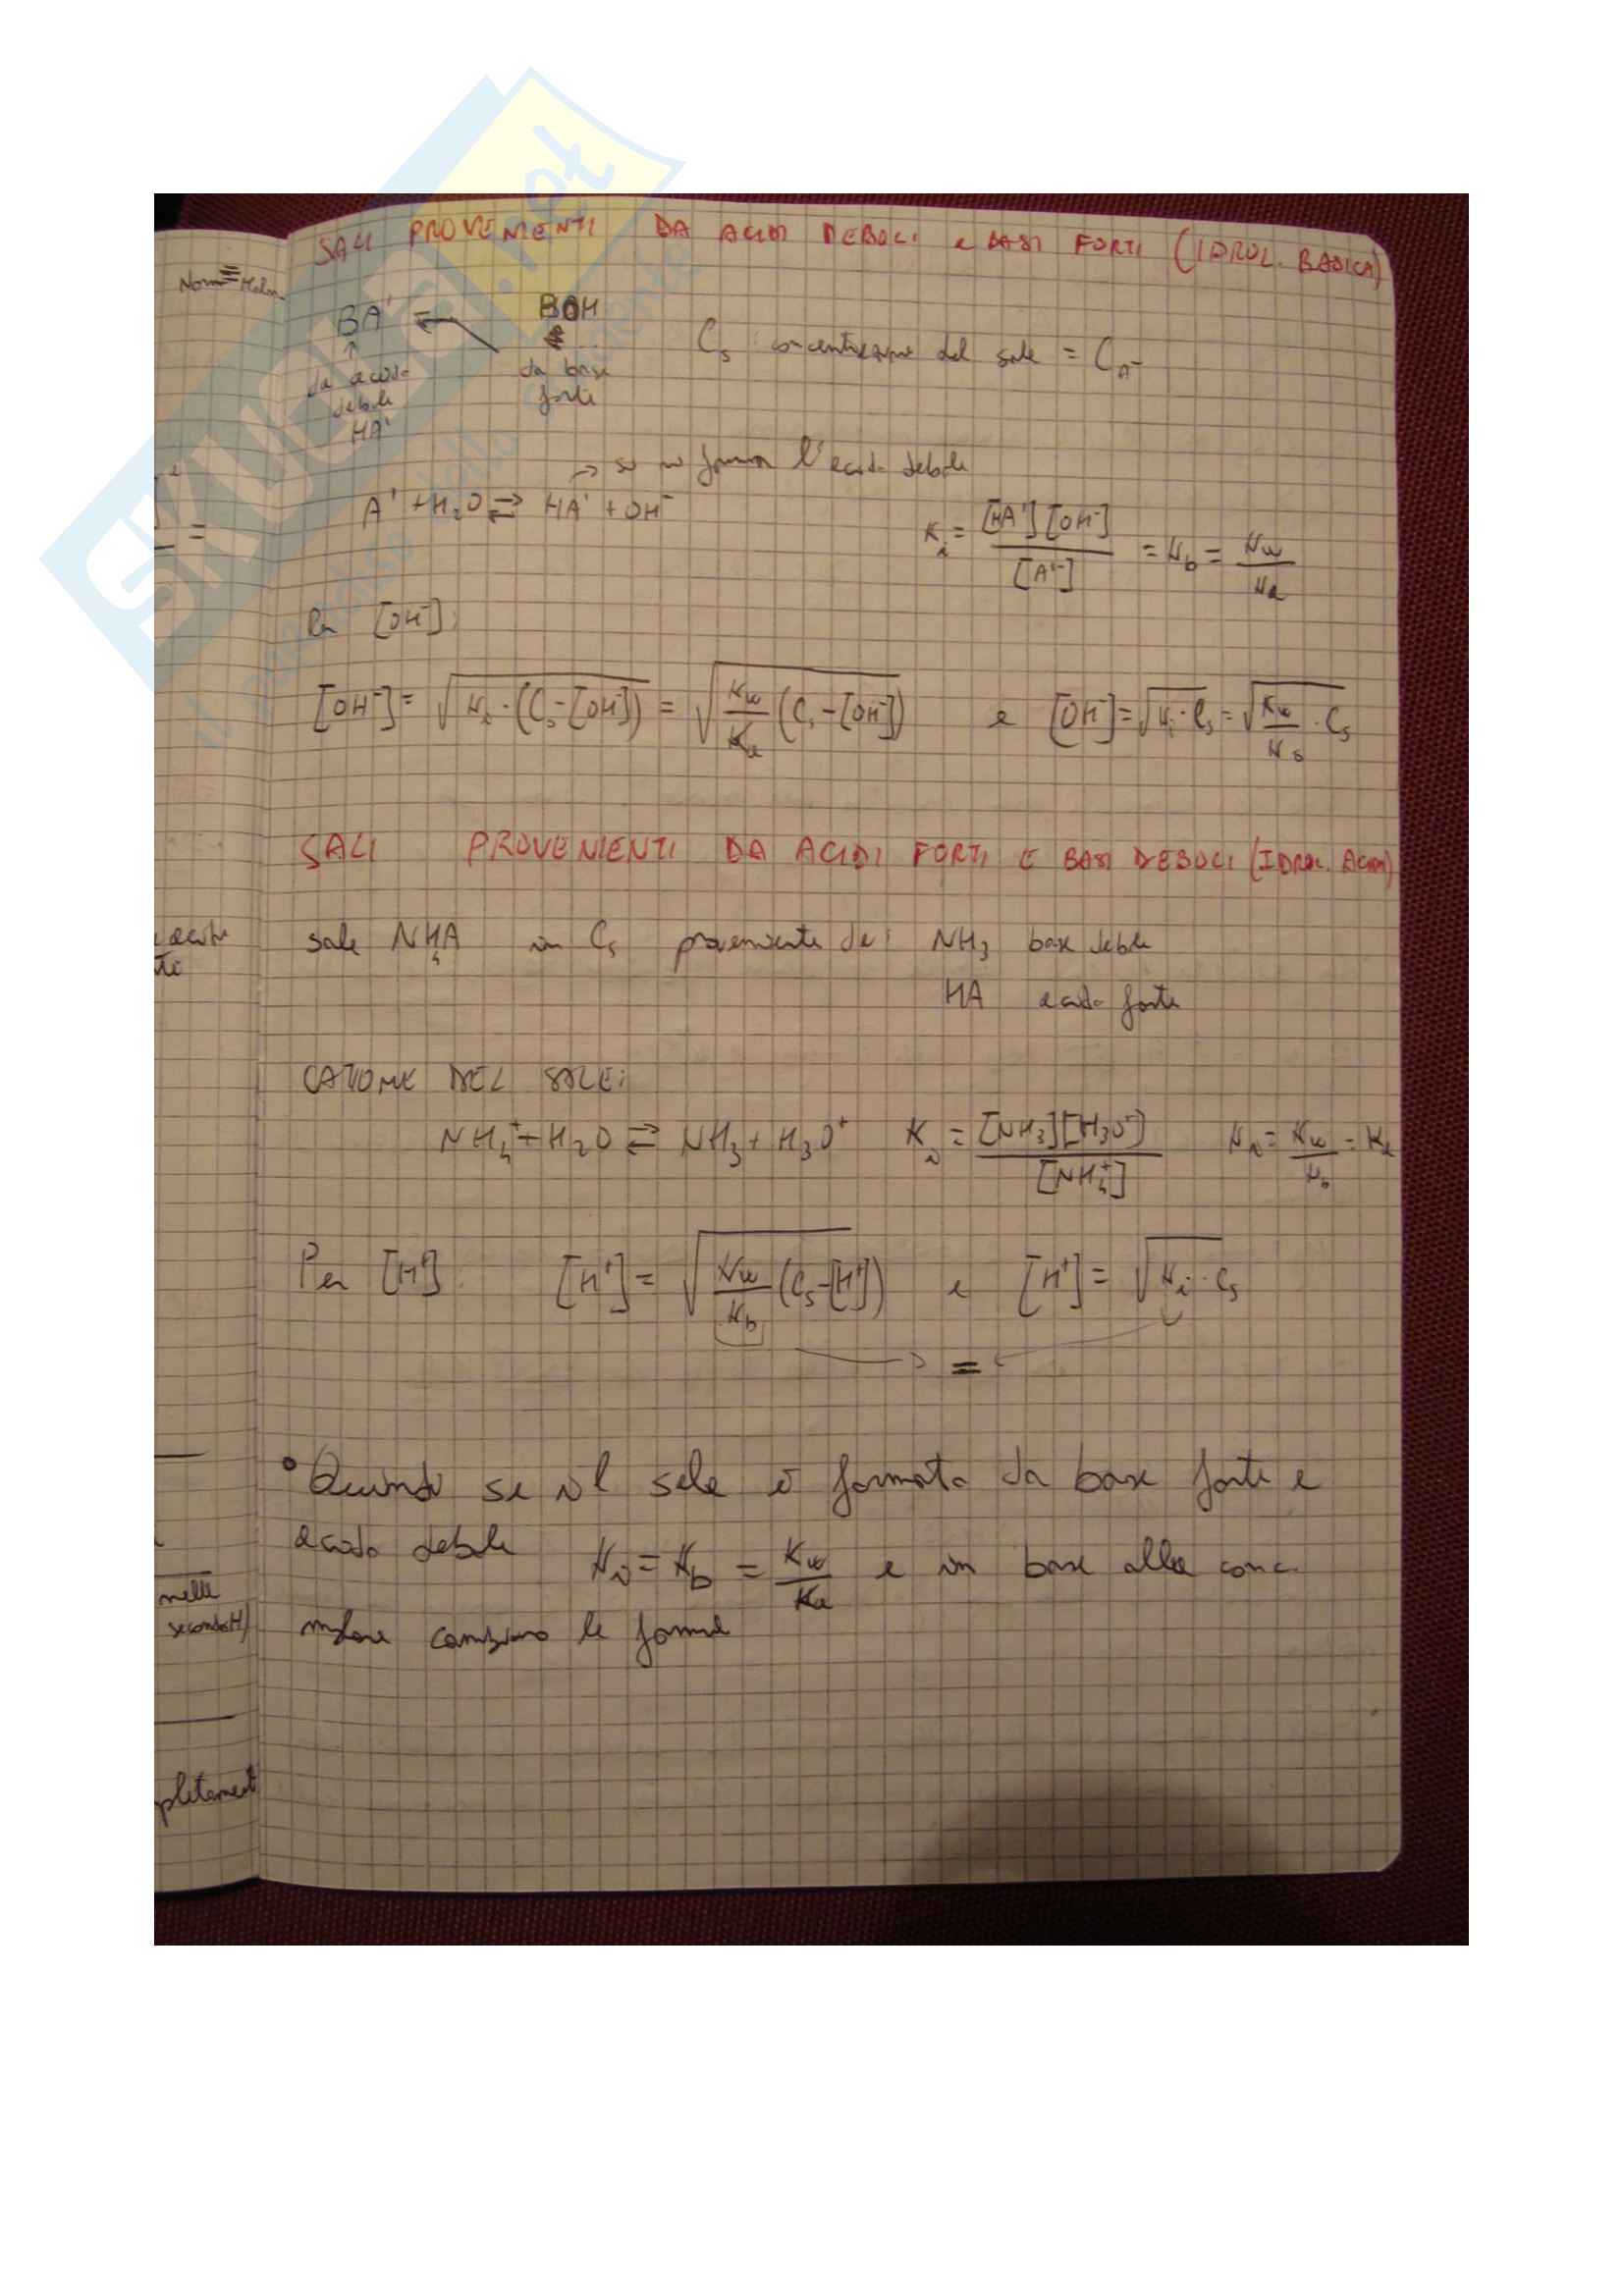 SALI PROVENIENTI DA ACIDI DEBOLI e BASI FORTI (IDROL. BASICA)
BA' BOH
da acido debole HA'
da base forte
Cs concentrazione del sale = CA-
→ si forma l'acido debole
A' + H2O ⇌ HA' + OH-
Ki = [HA'][OH-] / [A'-] = Kb = Kw / Ka
Per [OH-]:
[OH-] = √(Ki · (Cs - [OH-])) = √(Kw/Ka (Cs - [OH-])) e [OH-] = √(Ki · Cs) = √(Kw/Ka · Cs)
SALI PROVENIENTI DA ACIDI FORTI E BASI DEBOLI (IDROL. ACIDA)
sale NH4A in Cs proveniente da: NH3 base debole
HA acido forte
CATIONE DEL SALE:
NH4+ + H2O ⇌ NH3 + H3O+ Ki = [NH3][H3O+] / [NH4+] Ki = Kw / Kb = Ka
Per [H+]: [H+] = √(Kw/Kb (Cs - [H+])) e [H+] = √(Ki · Cs)
=
• Quindi se il sale è formato da base forte e
acido debole Ki = Kb = Kw / Ka e in base alla conc.
cambiano le formule
nelle
secondo H)
pletament
skuola.net